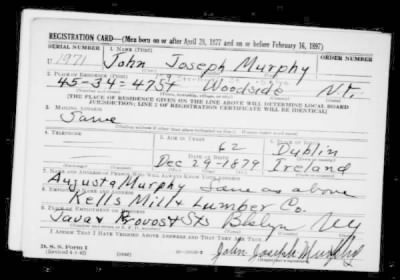 REGISTRATION CARD—(Men born on or after April 28, 1877 and on or before February 16, 1897)
SERIAL NUMBER 1. NAME (Print) ORDER NUMBER
U 1971 John Joseph Murphy
2. PLACE OF RESIDENCE (Print)
45-34-47 St. Woodside N.Y.
[THE PLACE OF RESIDENCE GIVEN ON THE LINE ABOVE WILL DETERMINE LOCAL BOARD
JURISDICTION; LINE 2 OF REGISTRATION CERTIFICATE WILL BE IDENTICAL]
3. MAILING ADDRESS
Same
4. TELEPHONE 5. AGE IN YEARS 6. PLACE OF BIRTH
62 Dublin
DATE OF BIRTH
Dec 29-1879 Ireland
7. NAME AND ADDRESS OF PERSON WHO WILL ALWAYS KNOW YOUR ADDRESS
Augusta Murphy Same as above
Kells Mill & Lumber Co.
Java & Provost Sts Bklyn NY
I AFFIRM THAT I HAVE VERIFIED ABOVE ANSWERS AND THAT THEY ARE TRUE.
D. S. S. Form 1
John Joseph Murphy